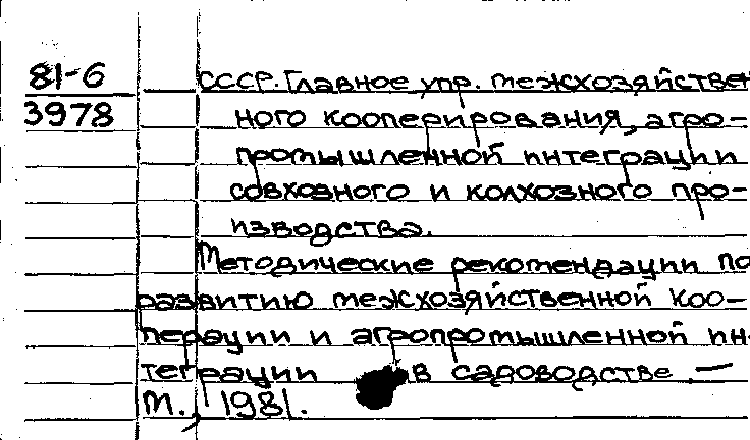 81-6
3978
СССР. Главное упр. межхозяйствен
ного кооперирования, агро-
промышленной интеграции
совхозного и колхозного про-
изводства.
Методические рекомендации по
развитию межхозяйственной коо-
перации и агропромышленной ин-
теграции в садоводстве. —
М., 1981.